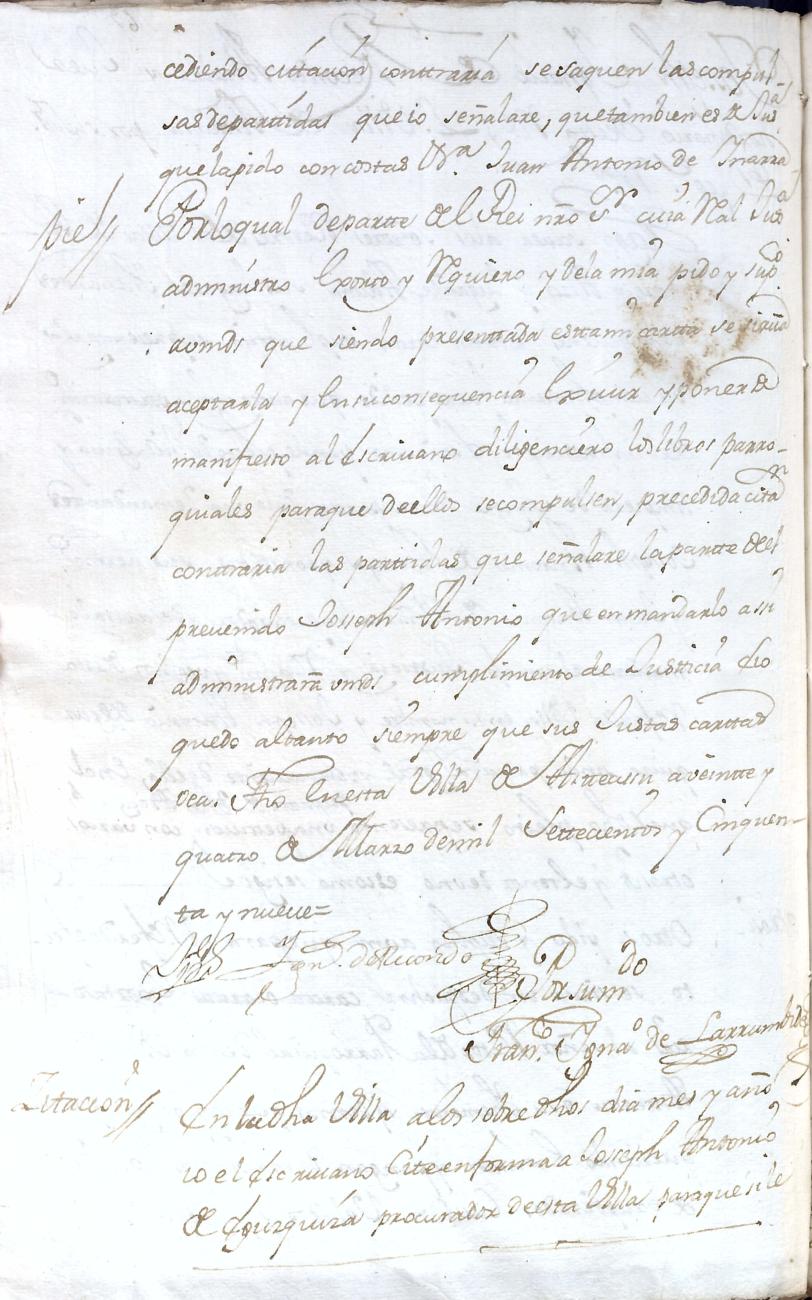 cediendo cittación conttraria se saquen las compul
sas departtidas que io señalare, quetambien es de Jusª
quelapido concostas Vª. Juan Antonio de Inarra
pie// Porloqual departte del Rei nrõ Sr cuia Ral Jusª
administro Exorto y Rquiero y dela mia pido y supco
avmds que siendo presenttada esttami cartta se sirvã
aceptarla y Ensuconsequencia Exivir y poner de
manifiesto al Escrivano diligenciero loslibros parro-
quiales paraque deellos secompulsen, precedida citaon
conttraria las parttidas que señalare lapartte del
prevenido Josseph Antonio que enmandarlo assi
administraran vmds cumplimiento de Justicia Eio
quedo altanto siempre que sus Justas carttas
vea. fho Enesta Villa de Astteasu aveintte y
quatro de Marzo demil Settecientos y Cinquen-
ta y nueve=
Ign. de Recondo
Porsumdo
Fran.co Ignaº de Larrumbide
Zitacion// En ladha Villa alos sobredhos dia mes y año
io el Escrivano Cite enforma a Joseph Antonio
de Egurquiza procurador deesta Villa paraque sile